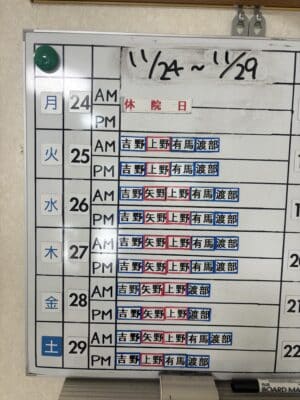 11/24～11/29
月 24 AM 休院日
PM
火 25 AM 吉野 上野 有馬 渡部
PM 吉野 上野 有馬 渡部
水 26 AM 吉野 矢野 上野 有馬 渡部
PM 吉野 矢野 上野 有馬 渡部
木 27 AM 吉野 矢野 上野 有馬 渡部
PM 吉野 矢野 上野 有馬 渡部
金 28 AM 吉野 矢野 上野 渡部
PM 吉野 矢野 上野 渡部
土 29 AM 吉野 矢野 上野 有馬 渡部
PM 吉野 上野 有馬 渡部
22
BOARD MA